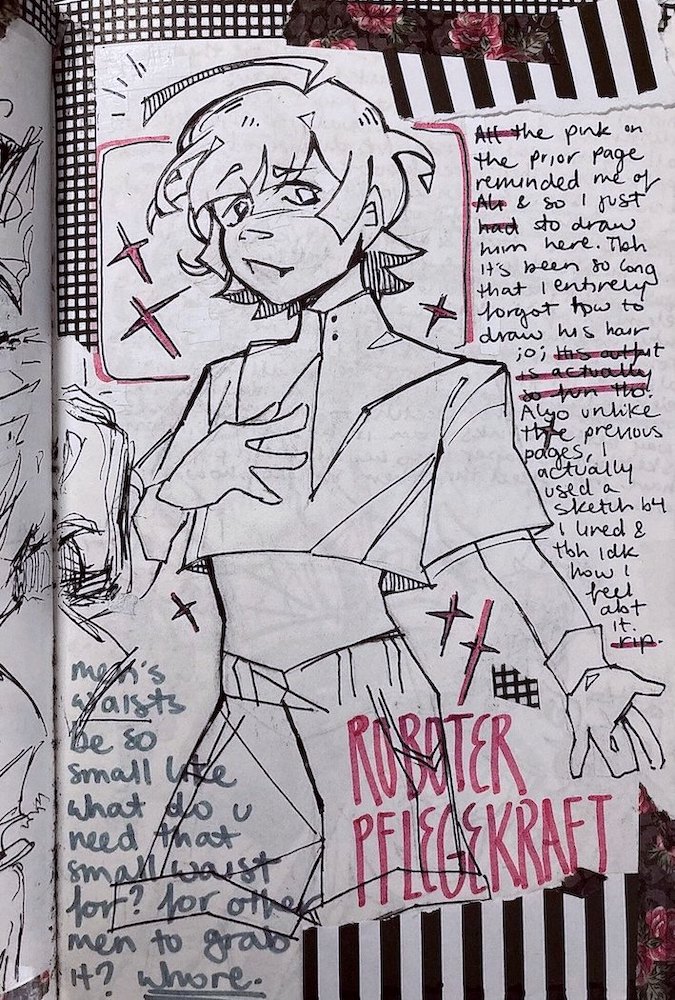 All the pink on
the prior page
reminded me of
Ali & so I just
had to draw
him here. Tbh
it's been so long
that I entirely
forgot how to
draw his hair
;o; His outfit
is actually
so fun tho!
Also unlike
the previous
pages, I
actually
used a
sketch b4
I lined &
tbh idk
how I
feel
abt
it.
rip.
men's
waists
be so
small like
what do u
need that
small waist
for? for other
men to grab
it? whore.
ROBOTER
PFLEGEKRAFT